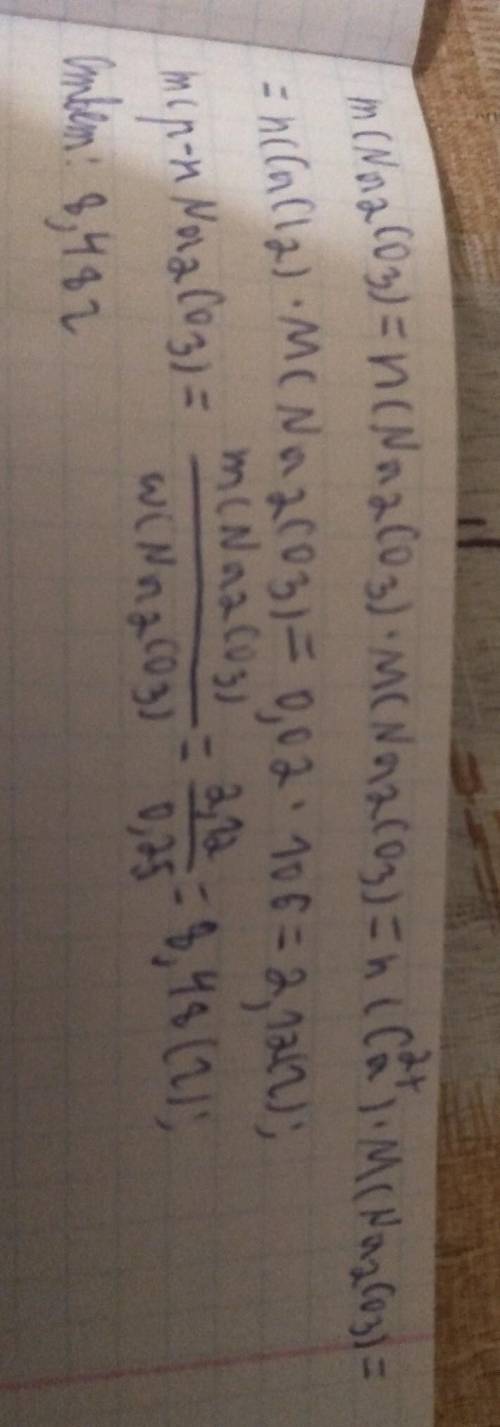 m(Na2CO3) = n(Na2CO3) · M(Na2CO3) = n(Ca²⁺) · M(Na2CO3) =
= n(CaCl2) · M(Na2CO3) = 0,02 · 106 = 2,12(г);
m(р-н Na2CO3) = m(Na2CO3) / w(Na2CO3) = 2,12 / 0,25 = 8,48(г);
Ответ: 8,48 г